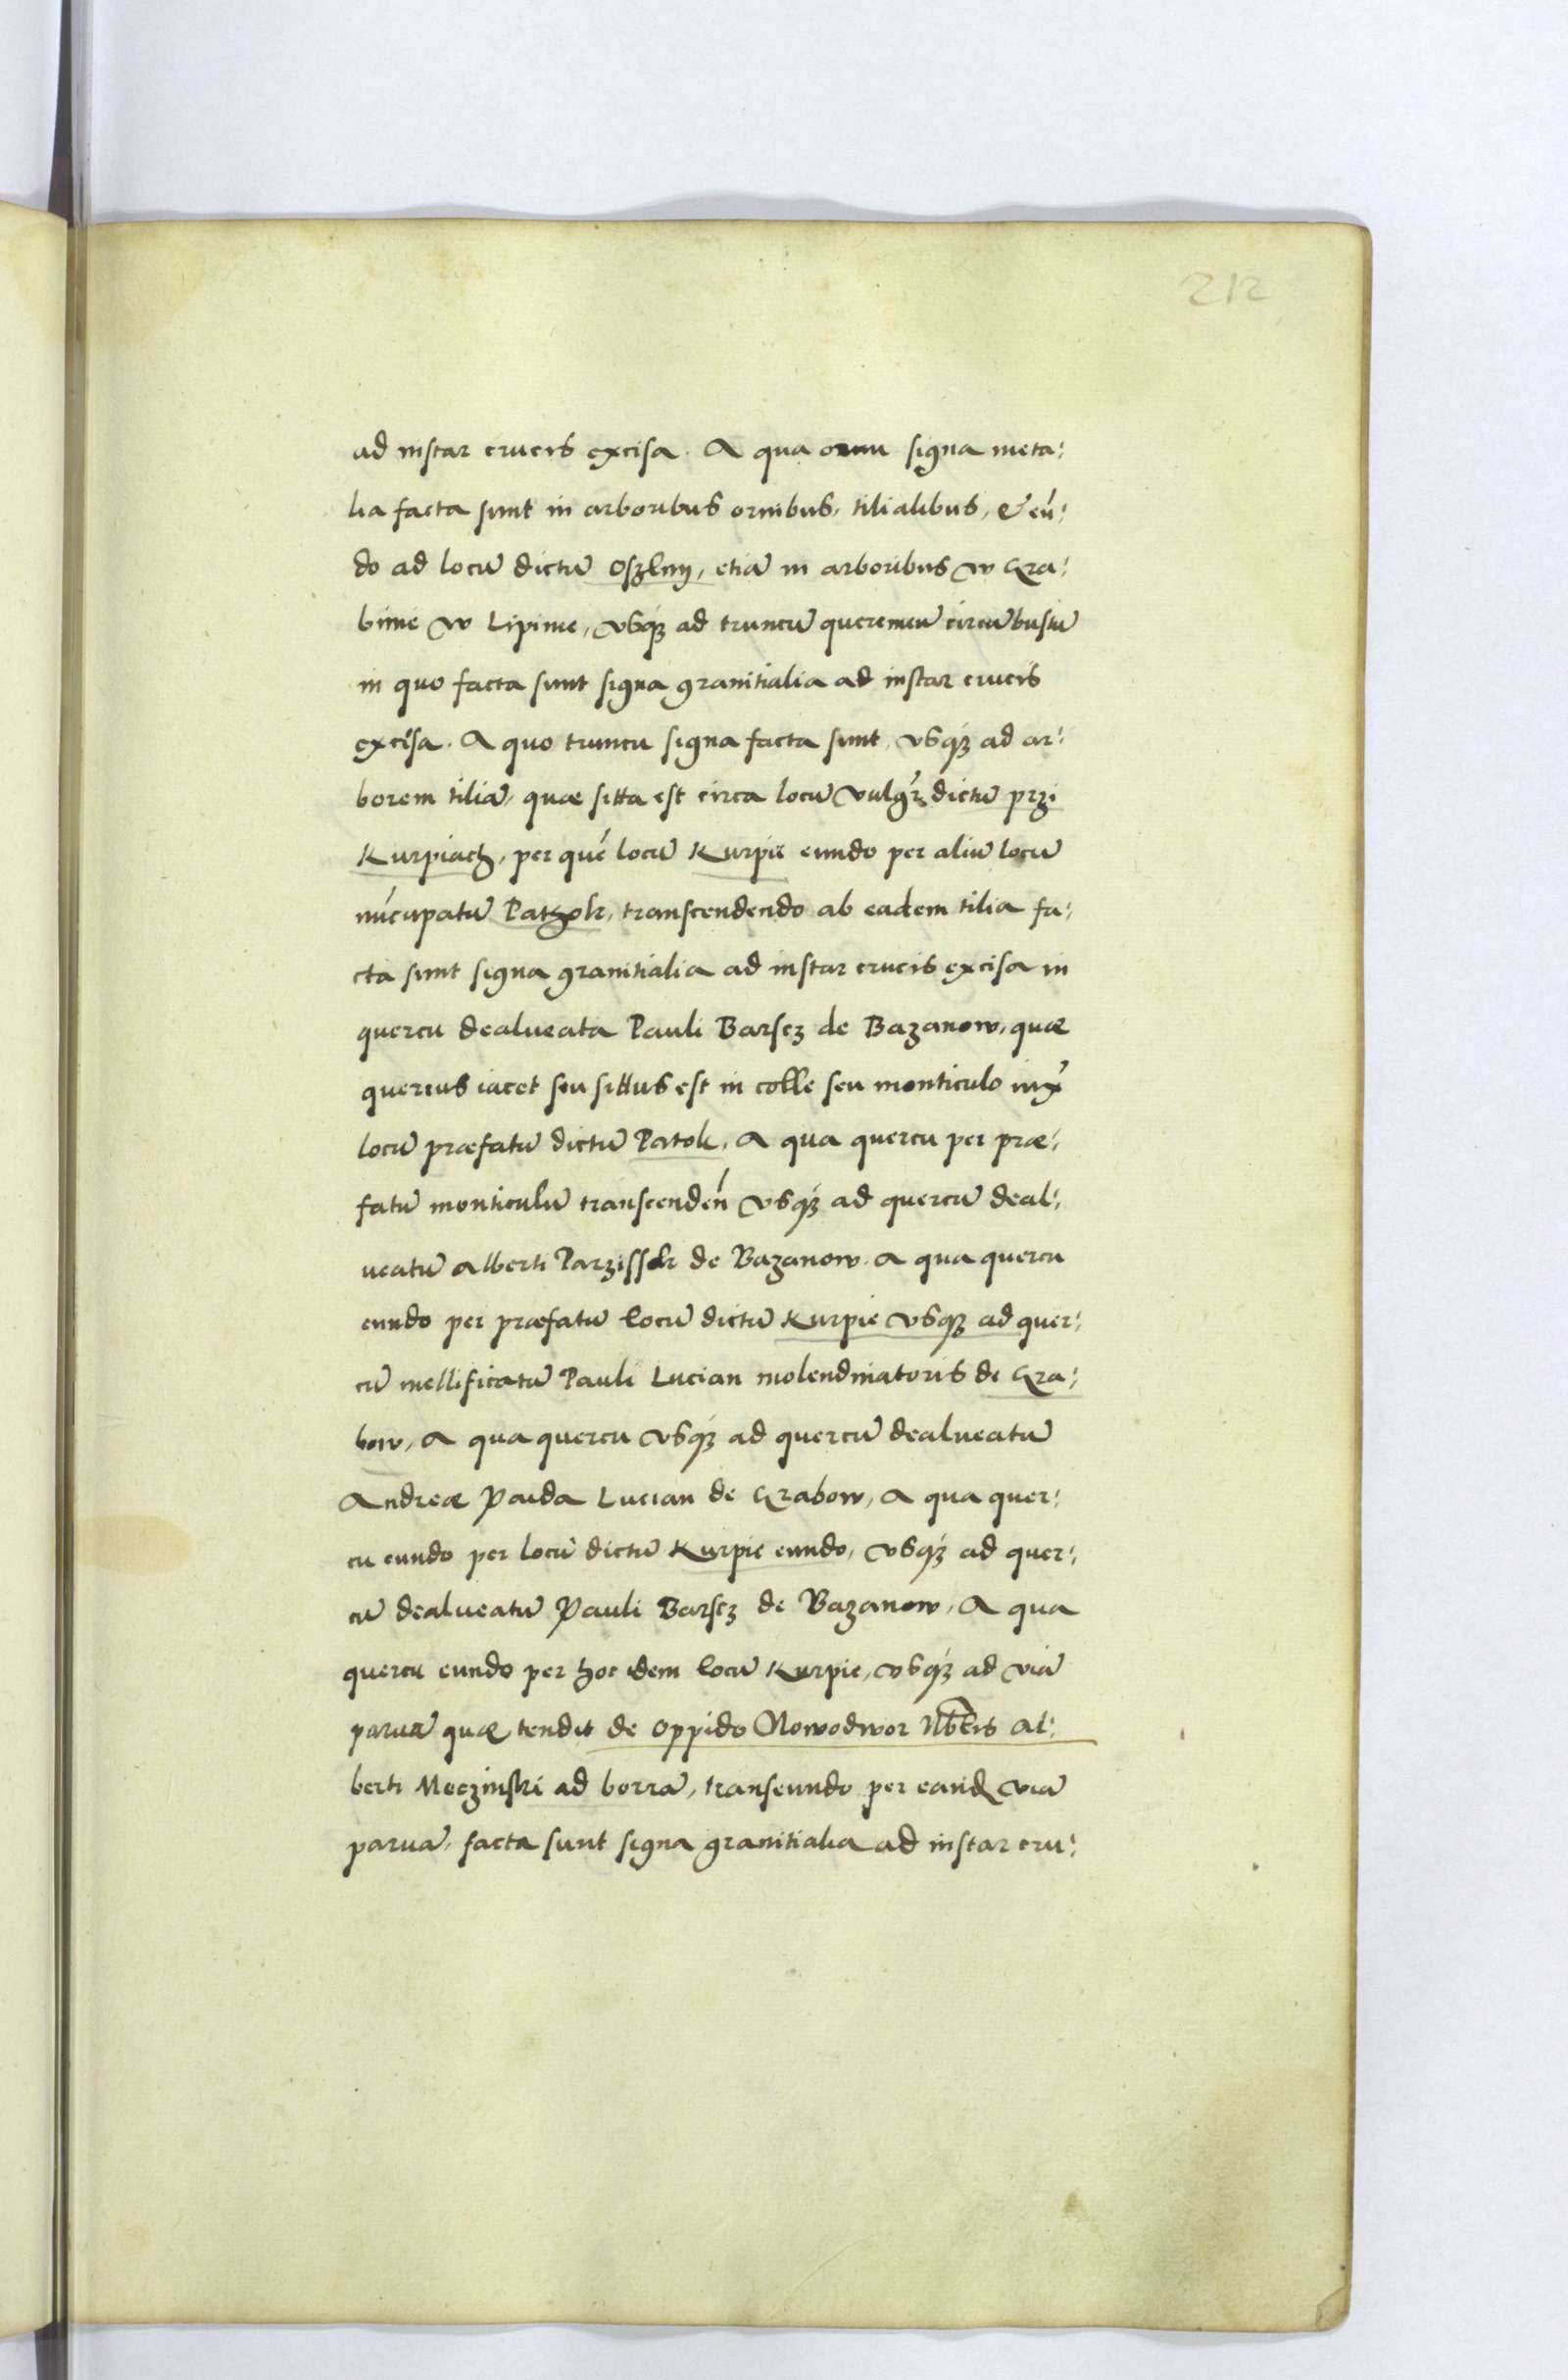 212
ad instar crucis excisa. A qua ornu signa meta:
lia facta sunt in arboribus ornibus, tilialibus, & eū:
do ad locū dictū Oszlmy, etiā in arboribus w Gra:
binie w Lipinie, vsq́ꝫ ad truncū querernū circūbustū
in quo facta sunt signa granitialia ad instar crucis
excisa. A quo truncu signa facta sunt, vsq́ꝫ ad ar:
borem tiliā, quæ sitta est circa locū vulgr̃ dictū przi
Kurpiach, per quē locū Kurpie eundo per aliū locū
nūcupatū Pathok, transcendendo ab eadem tilia fa:
cta sunt signa granitialia ad instar crucis excisa in
quercu dealueata Pauli Barscz de Bazanow, quæ
quercus iacet seu sittus est in colle seu monticulo iuxͣ
locū præfatū dictū Patok, A qua quercu per præ:
fatū monticulū transcendeń vsq́ꝫ ad quercū deal:
ueatū Alberti Parzissek de Bazanow. A qua quercu
eundo per præfatū locū dictū Kurpie vsq́ꝫ ad quer:
cū mellificatū Pauli Lucian molendinatoris de Gra:
bow, A qua quercu vsq́ꝫ ad quercū dealueatū
Andreæ Pauda Lucian de Grabow, A qua quer:
cu eundo per locū dictū Kurpie eundo, vsq́ꝫ ad quer:
cū dealueatū Pauli Barscz de Bazanow, A qua
quercu eundo per hoc idem locū Kurpie, vsq́ꝫ ad viā
paruā quæ tendit de oppido Nowodwor Nb̃lis Al:
berti Meczinski ad borrā, transeundo per eandē viā
paruā, facta sunt signa granitialia ad instar cru: